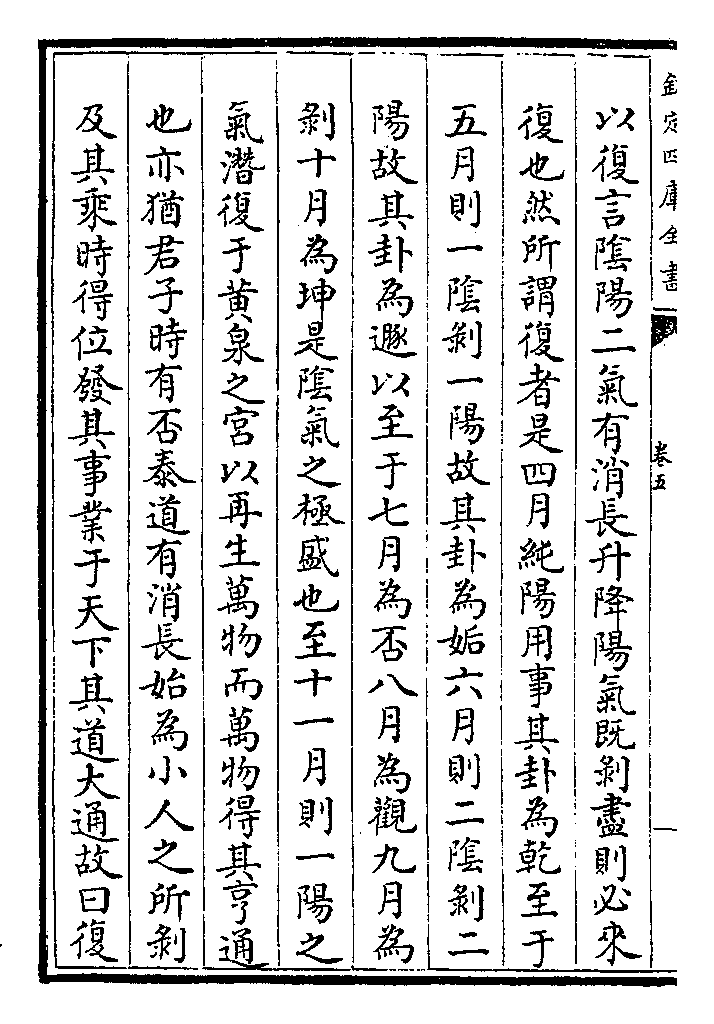 欽定四庫全書
卷五
一
以復言隂陽二氣有消長升降陽氣既剝盡則必來
復也然所謂復者是四月純陽用事其卦為乾至于
五月則一隂剝一陽故其卦為姤六月則二隂剝二
陽故其卦為遯以至于七月為否八月為觀九月為
剝十月為坤是隂氣之極盛也至十一月則一陽之
氣潛復于黄泉之宮以再生萬物而萬物得其亨通
也亦猶君子時有否泰道有消長始為小人之所剝
及其乘時得位發其事業于天下其道大通故曰復